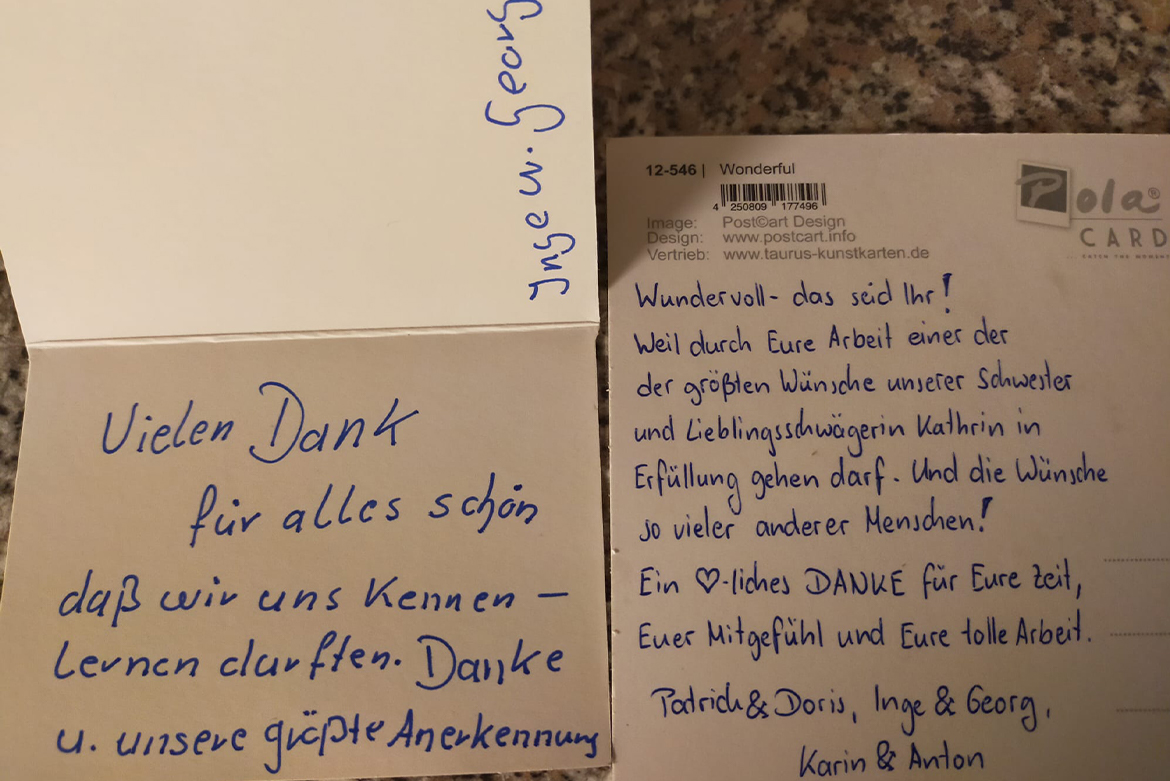 Inge u. Georg
Vielen Dank
für alles schön
daß wir uns Kennen –
Lernen durften. Danke
u. unsere größte Anerkennung
12-546 | Wonderful
4 250809 177496
Image: Post©art Design
Design: www.postcart.info
Vertrieb: www.taurus-kunstkarten.de
Pola®
CARD
Wundervoll - das seid Ihr!
Weil durch Eure Arbeit einer der
der größten Wünsche unserer Schwester
und Lieblingsschwägerin Kathrin in
Erfüllung gehen darf. Und die Wünsche
so vieler anderer Menschen!
Ein ♡-liches DANKE für Eure Zeit,
Euer Mitgefühl und Eure tolle Arbeit.
Patrick & Doris, Inge & Georg,
Karin & Anton